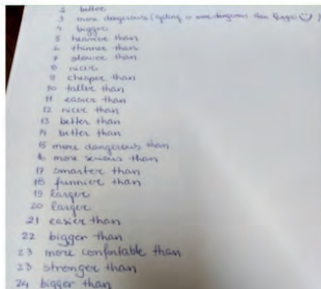 2 better
3 more dangerous (cycling is more dangerous than
4 bigger
5 heavier than
6 thinner than
7 slower than
8 nicer
9 cheaper than
10 taller than
11 easier than
12 nicer than
13 better than
14 better than
15 more dangerous than
16 more serious than
17 smarter than
18 funnier than
19 larger
20 larger
21 easier than
22 bigger than
23 more comfortable than
23 stronger than
24 bigger than